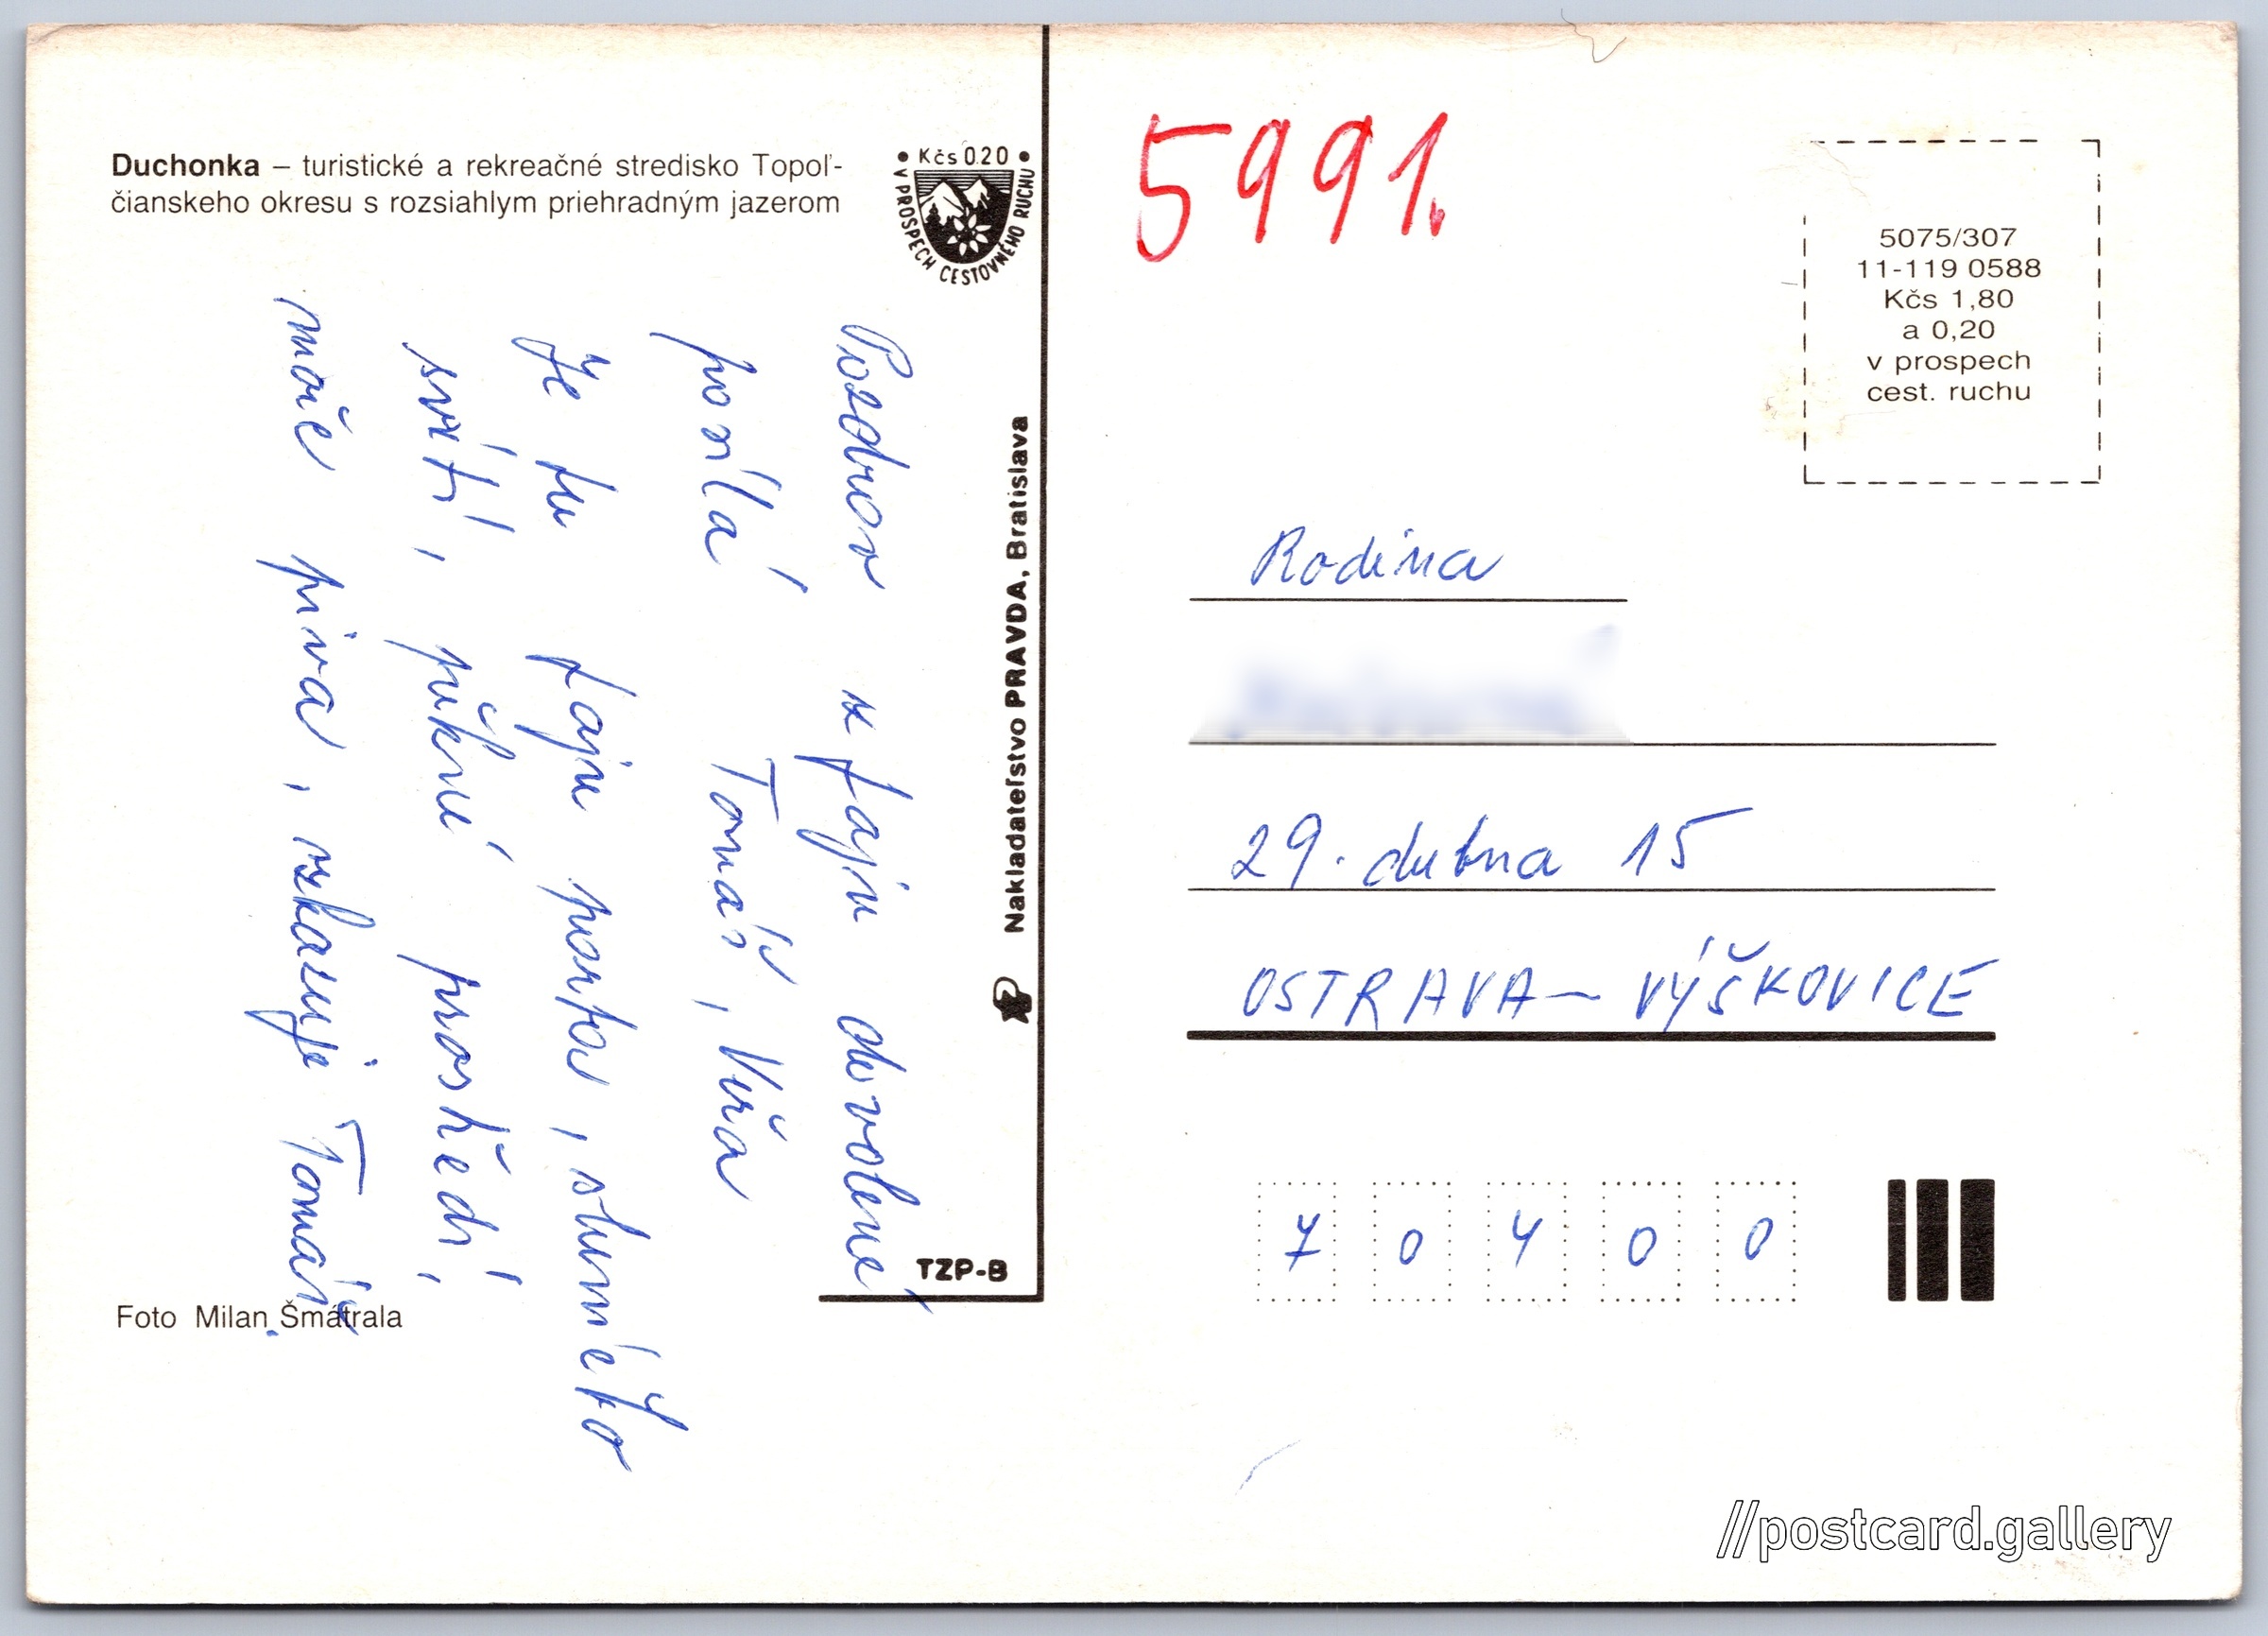 Duchonka – turistické a rekreačné stredisko Topoľ-
čianskeho okresu s rozsiahlym priehradným jazerom
• Kčs 0.20 •
V PROSPECH CESTOVNÉHO RUCHU
Pozdrav z fajn dovolené
posílá Tomáš, Věra
Je tu fajn parta, sluníčko
svítí, pěkné prostředí,
moře piva, vzkazuje Tomáš.
Foto Milan Šmátrala
Nakladateľstvo PRAVDA, Bratislava
TZP-B
5991.
5075/307
11-119 0588
Kčs 1,80
a 0,20
v prospech
cest. ruchu
Rodina
29. dubna 15
OSTRAVA – VÝŠKOVICE
7 0 4 0 0
//postcard.gallery